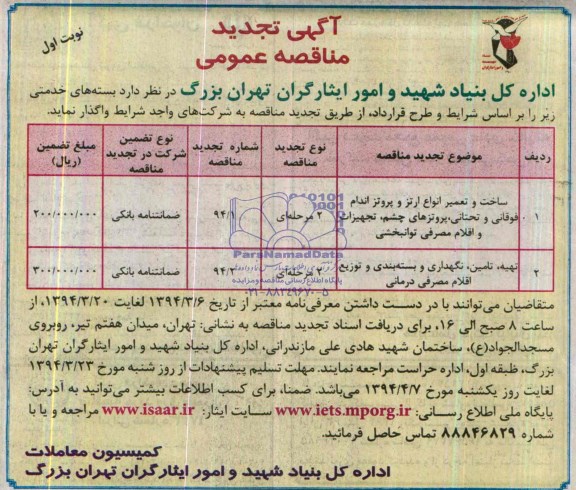 آگهی تجدید
مناقصه عمومی
نوبت اول
اداره کل بنیاد شهید و امور ایثارگران تهران بزرگ در نظر دارد بسته‌های خدمتی
زیر را بر اساس شرایط و طرح قرارداد، از طریق تجدید مناقصه به شرکت‌های واجد شرایط واگذار نماید.
ردیف موضوع تجدید مناقصه نوع تجدید مناقصه شماره تجدید مناقصه نوع تضمین شرکت در تجدید مناقصه مبلغ تضمین (ریال)
۱ ساخت و تعمیر انواع ارتز و پروتز اندام فوقانی و تحتانی،پروتزهای چشم، تجهیزات و اقلام مصرفی توانبخشی ۲ مرحله‌ای ۹۴/۱ ضمانتنامه بانکی ۲۰۰/۰۰۰/۰۰۰
۲ تهیه، تامین، نگهداری و بسته‌بندی و توزیع اقلام مصرفی درمانی ۲ مرحله‌ای ۹۴/۲ ضمانتنامه بانکی ۳۰۰/۰۰۰/۰۰۰
ParsNamadData
پایگاه اطلاع رسانی مناقصه و مزایده
۰۲۱-۸۸۳۴۹۶۷۰-۵
متقاضیان می‌توانند با در دست داشتن معرفی‌نامه معتبر از تاریخ ۱۳۹۴/۳/۶ لغایت ۱۳۹۴/۳/۲۰، از
ساعت ۸ صبح الی ۱۶، برای دریافت اسناد تجدید مناقصه به نشانی: تهران، میدان هفتم تیر، روبروی
مسجدالجواد(ع)، ساختمان شهید هادی علی مازندرانی، اداره کل بنیاد شهید و امور ایثارگران تهران
بزرگ، طبقه اول، اداره حراست مراجعه نمایند. مهلت تسلیم پیشنهادات از روز شنبه مورخ ۱۳۹۴/۳/۲۳
لغایت روز یکشنبه مورخ ۱۳۹۴/۴/۷ می‌باشد. ضمنا، برای کسب اطلاعات بیشتر می‌توانید به آدرس:
پایگاه ملی اطلاع رسانی: www.iets.mporg.ir سایت ایثار: www.isaar.ir مراجعه و یا با
شماره ۸۸۸۴۶۸۲۹ تماس حاصل فرمائید.
کمیسیون معاملات
اداره کل بنیاد شهید و امور ایثارگران تهران بزرگ